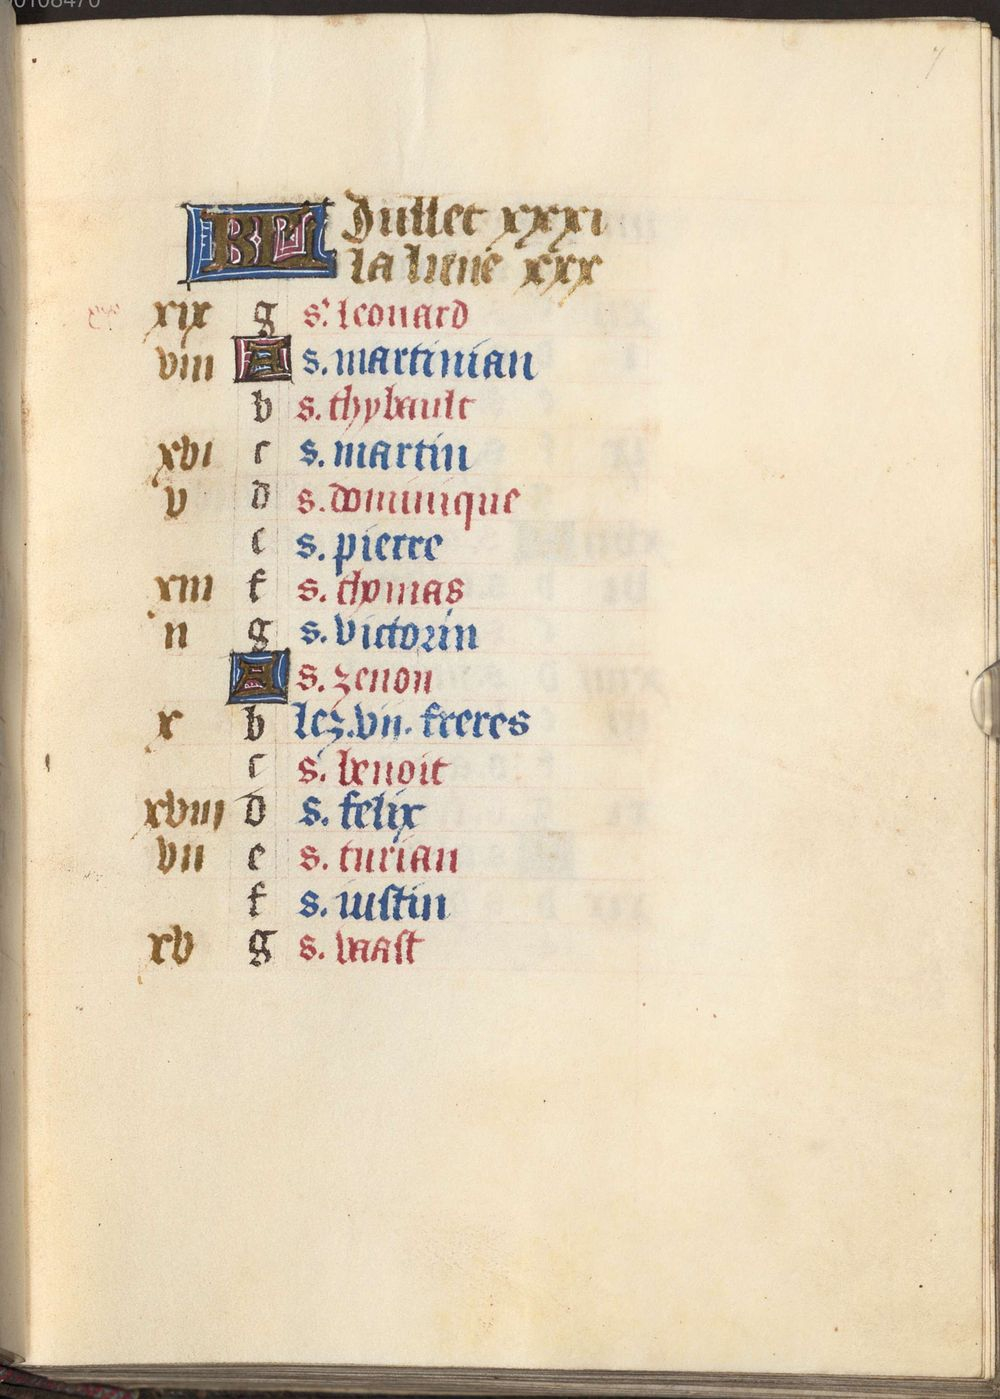 00108470
7
KL Juillet xxxi
la lune xxx
xix g s. leonard
viii A s. martinian
b s. thybault
xvi c s. martin
v d s. dominique
e s. pierre
xiii f s. thomas
ii g s. victorin
A s. zenon
x b lez .vii. freres
c s. benoit
xviii d s. felix
vii e s. turian
f s. iustin
xv g s. vaast